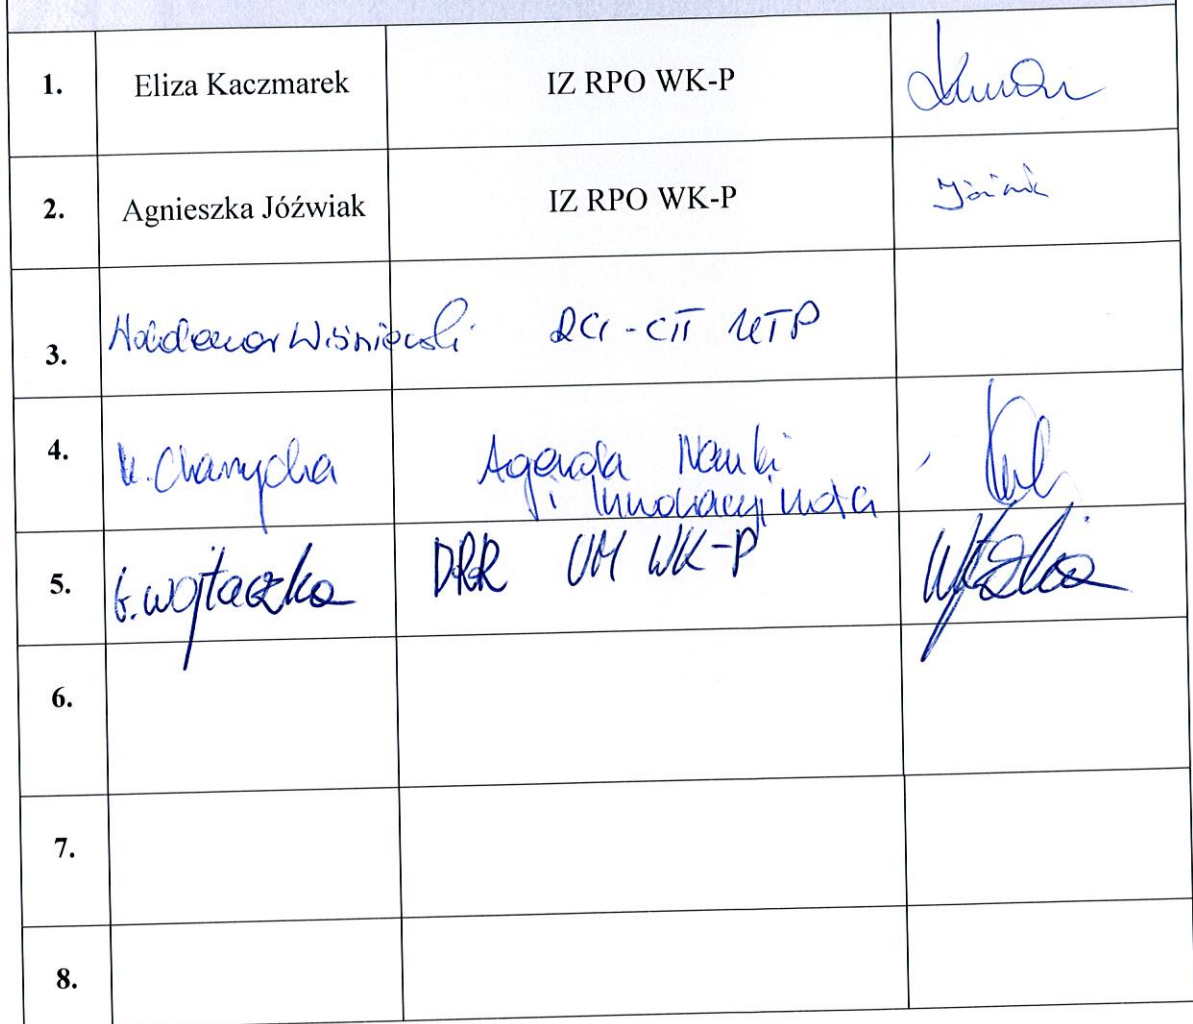 1. Eliza Kaczmarek IZ RPO WK-P
2. Agnieszka Jóźwiak IZ RPO WK-P Jóźwiak
3. Waldemar Wiśniewski RCI-CTT UTP
4. Agencja Nauki
i Innowacji
5. E. Wojtaszka DRR UM WK-P
6.
7.
8.